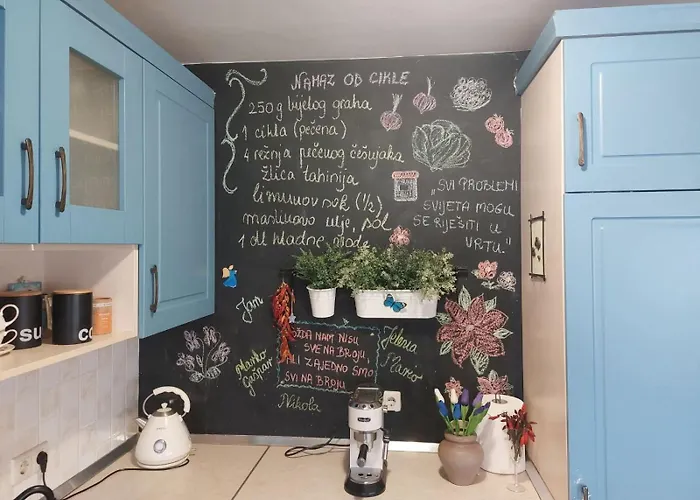 NAMAZ OD CIKLE
250 g bijelog graha
1 cikla (pečena)
4 režnja pečenog češnjaka
žlica tahinija
limunov sok (½)
maslinovo ulje, sol
1 dl hladne vode
„SVI PROBLEMI
SVIJETA MOGU
SE RIJEŠITI U
VRTU."
Jan
Marko
Gašpar
MOŽDA NAM NISU
SVE NA BROJU,
ALI ZAJEDNO SMO
SVI NA BROJU
Nikola
SU
CO